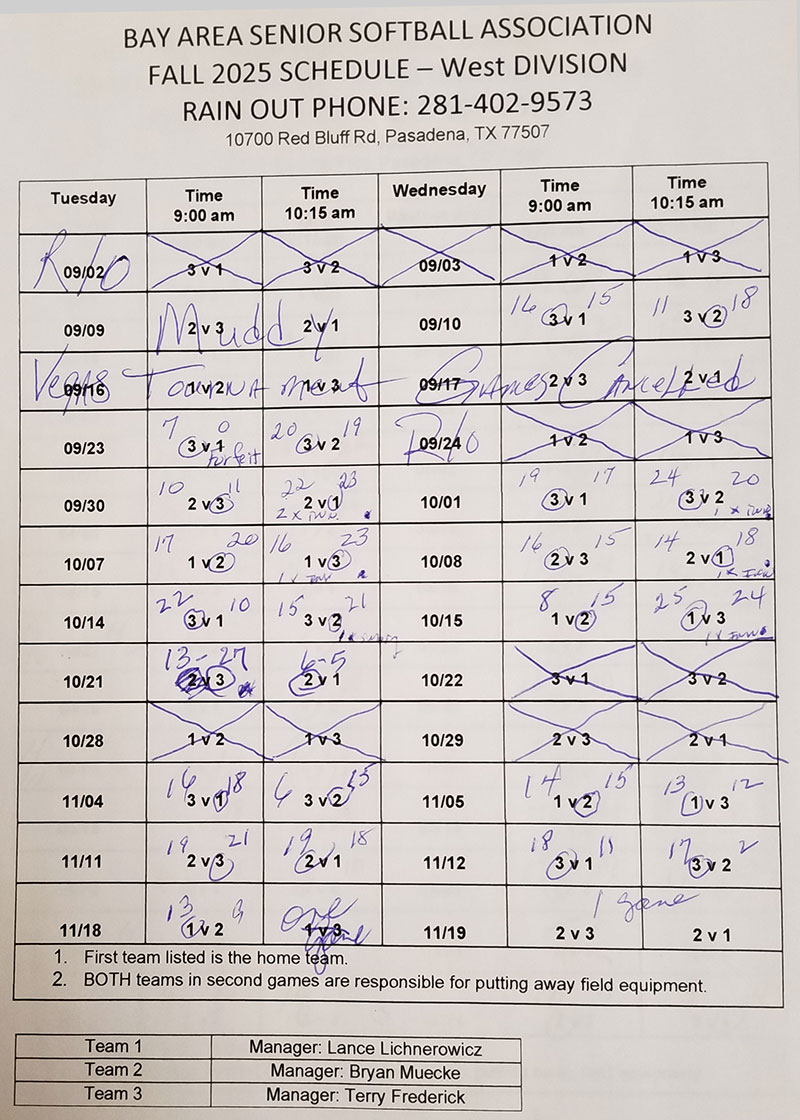 BAY AREA SENIOR SOFTBALL ASSOCIATION
FALL 2025 SCHEDULE – West DIVISION
RAIN OUT PHONE: 281-402-9573
10700 Red Bluff Rd, Pasadena, TX 77507
Tuesday Time 9:00 am Time 10:15 am Wednesday Time 9:00 am Time 10:15 am
R/O
09/02 3 v 1 3 v 2 09/03 1 v 2 1 v 3
Muddy 16 15 11 18
09/09 2 v 3 2 v 1 09/10 3 v 1 3 v 2
Vegas Tournament Games Cancelled
09/16 1 v 2 1 v 3 09/17 2 v 3 2 v 1
7 0 20 19 R/O
09/23 3 v 1 3 v 2 09/24 1 v 2 1 v 3
Forfeit
10 11 22 23 19 17 24 20
09/30 2 v 3 2 v 1 10/01 3 v 1 3 v 2
2 x inn. 1 x inn.
17 20 16 23 16 15 14 18
10/07 1 v 2 1 v 3 10/08 2 v 3 2 v 1
1 x Inn 1 x Inn
22 10 15 21 8 15 25 24
10/14 3 v 1 3 v 2 10/15 1 v 2 1 v 3
1 x Inn
13 - 27 6-5
10/21 2 v 3 2 v 1 10/22 3 v 1 3 v 2
10/28 1 v 2 1 v 3 10/29 2 v 3 2 v 1
16 18 6 15 14 15 13 12
11/04 3 v 1 3 v 2 11/05 1 v 2 1 v 3
19 21 19 18 18 11 17 2
11/11 2 v 3 2 v 1 11/12 3 v 1 3 v 2
13 9 one game 1 game
11/18 1 v 2 1 v 3 11/19 2 v 3 2 v 1
1. First team listed is the home team.
2. BOTH teams in second games are responsible for putting away field equipment.
Team 1 Manager: Lance Lichnerowicz
Team 2 Manager: Bryan Muecke
Team 3 Manager: Terry Frederick